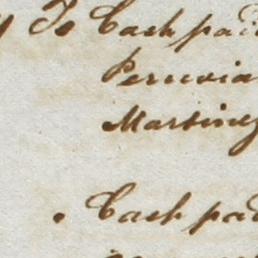 To Cash paid
Peruvia
Martiney
. Cash paid